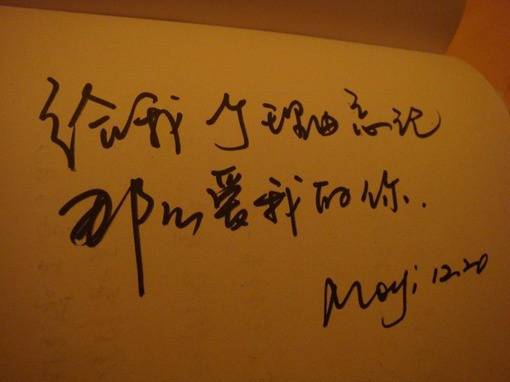 给我个理由忘记
那么爱我的你.
12.20